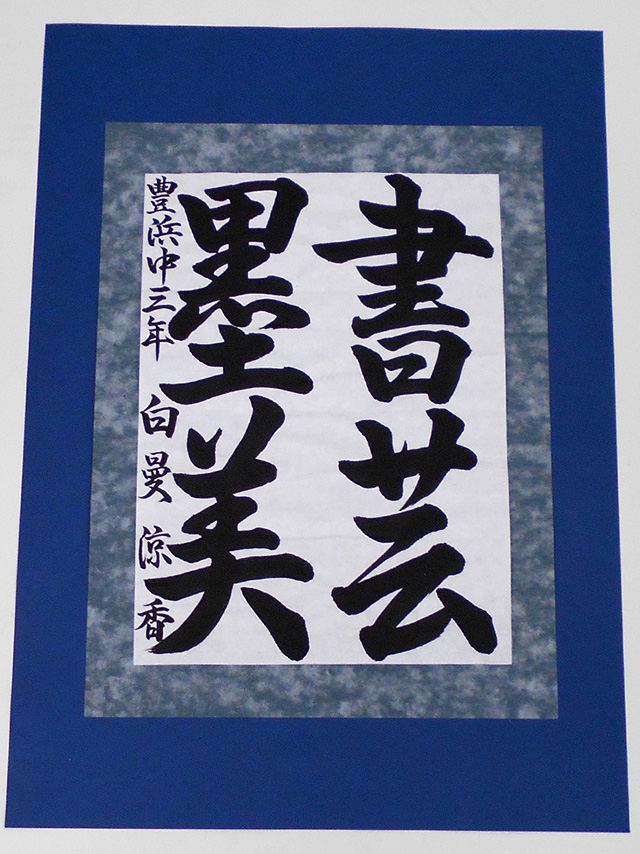 書芸
墨美
豊浜中三年 白曼涼香